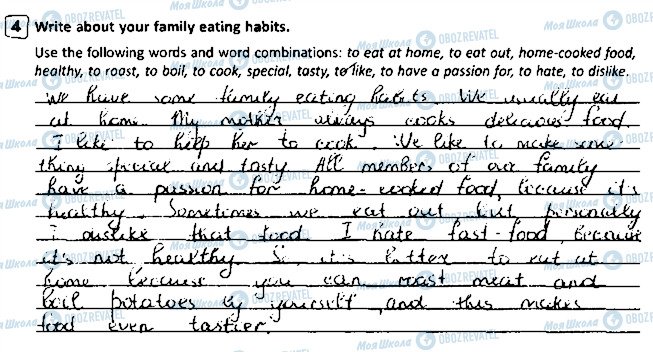 4 Write about your family eating habits.
Use the following words and word combinations: to eat at home, to eat out, home-cooked food,
healthy, to roast, to boil, to cook, special, tasty, to like, to have a passion for, to hate, to dislike.
We have some family eating habits. We usually eat
at home. My mother always cooks delicious food.
I like to help her to cook. We like to make some-
thing special and tasty. All members of our family
have a passion for home-cooked food, because it's
healthy. Sometimes we eat out, but personally
I dislike that food. I hate fast-food, because
it's not healthy. So, it's better to eat at
home because you can roast meat and
boil potatoes by yourself, and this makes
food even tastier.
Моя Школа OBOZREVATEL